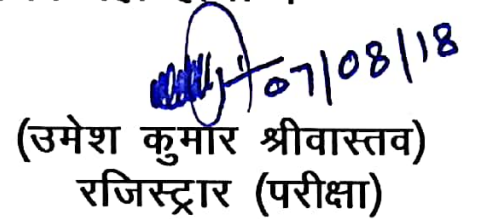 07/08/18
(उमेश कुमार श्रीवास्तव)
रजिस्ट्रार (परीक्षा)